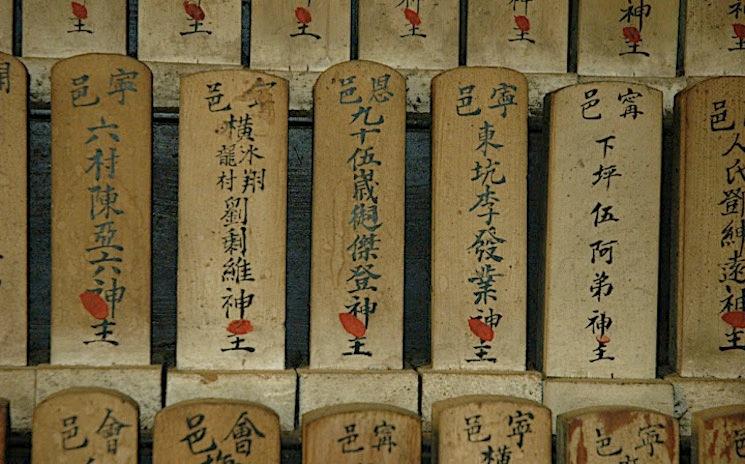 主
神主
主
神主
主
主
主
邑
人氏鄧紳遠神主
甯邑
下坪伍阿弟神主
寧邑
東坑李發業神主
恩邑
九十伍歲傑登神主
寧邑
橫水翔龍村劉剩維神主
寧邑
六村陳亞六神主
寧邑
寧邑
橫
甯邑
會邑
會邑